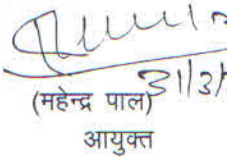 31/3/
(महेन्द्र पाल)
आयुक्त